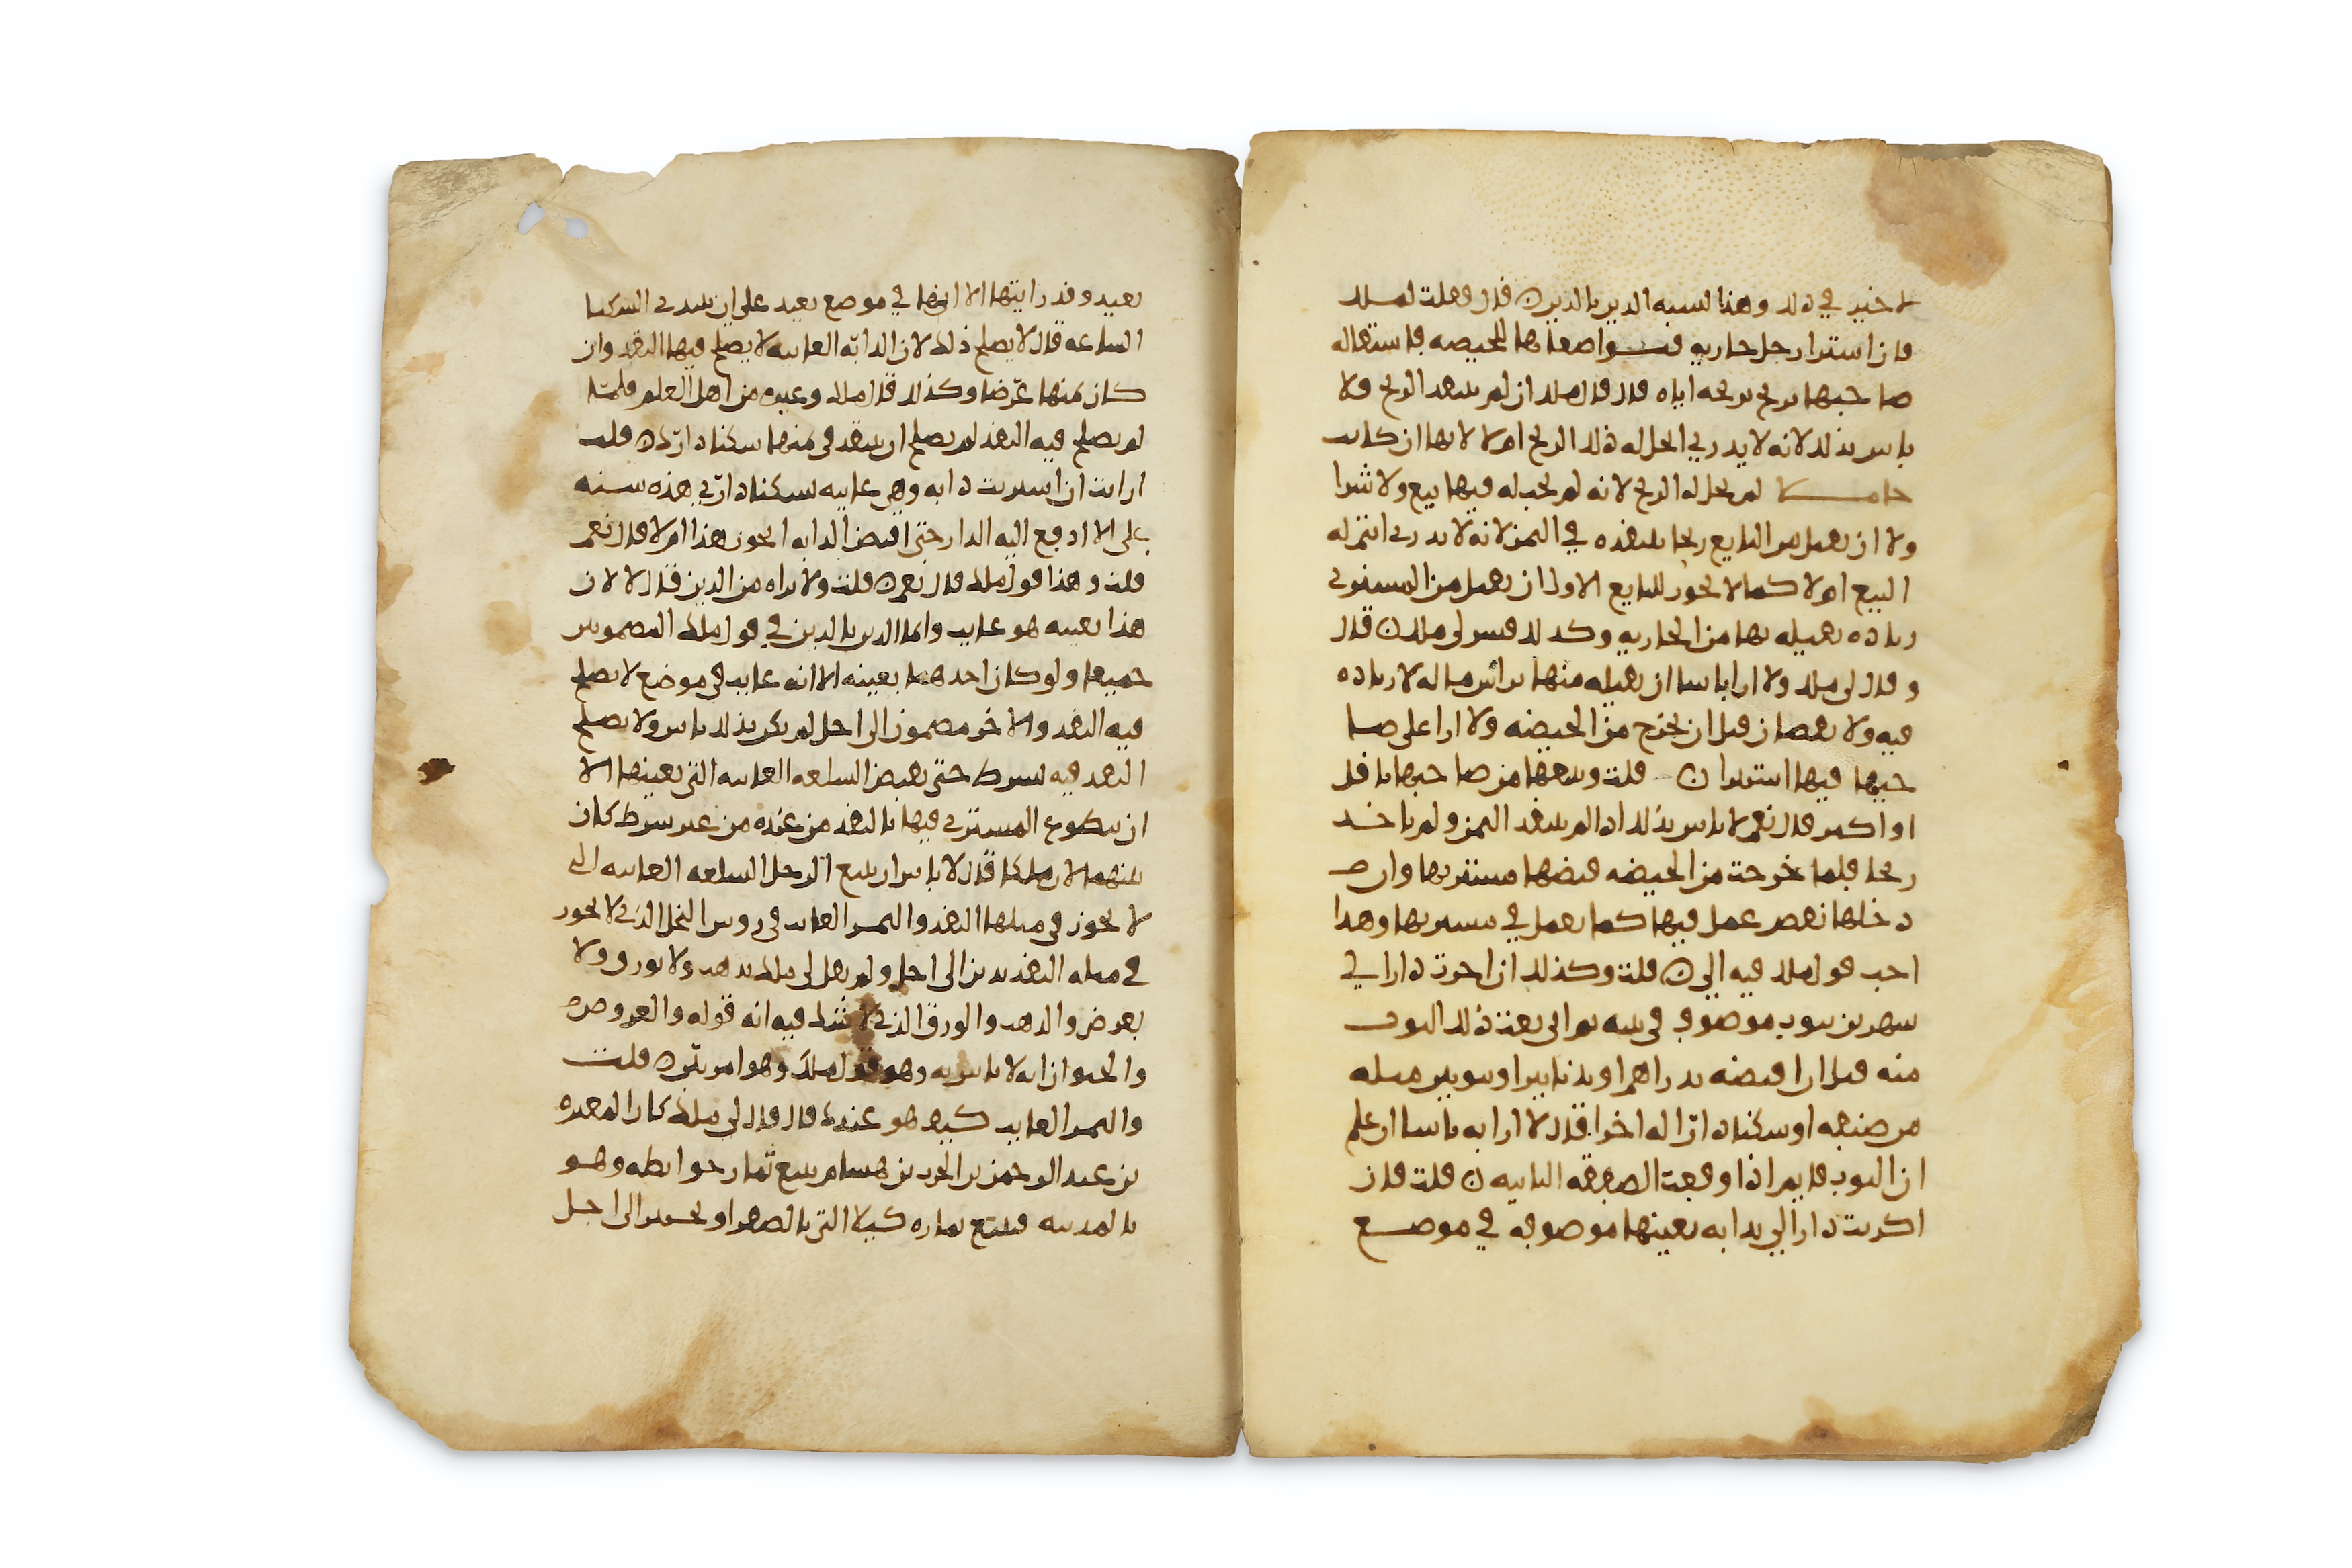 لا خير في ذلك وهذا يشبه الدين بالدين ۞ قال وقلت لملك
فان اشترا رجل جاريه فتواضعاها للحيضه فاستقاله
صاحبها بربح يربحه اياه قال قال ملك ان لم ينتقد الربح فلا
باس بذلك لانه لا يدري ايحل له ذلك الربح ام لا لانها ان كانت
حاملا لم يحل له الربح لانه لم يجب له فيها بيع ولا شرا
ولا ان يقبل من البايع ربحا ينتقده في الثمن لانه لا يدري ايتم له
البيع ام لا كما لا يجوز للبايع الاول ان يقبل من المشتري
زياده يقيله بها من الجاريه وكذلك فسر لي ملك ۞ قال
وقال لي ملك ولا ارا باسا ان يقيله منها براس ماله لا زياده
فيه ولا نقصان قبل ان تخرج من الحيضه ولا ارا على صا
حبها فيها استبرا ۞ قلت ويبيعها من صاحبها باقل
او اكثر قال نعم لا باس بذلك اذا لم ينتقد الثمن ولم ياخذ
ربحا فلما خرجت من الحيضه قبضها مشتريها وان
دخلها نقص عمل فيها كما يعمل في مشتريها وهذا
احب قول ملك فيه الي ۞ قلت وكذلك ان اجرت دارا لي
شهرين بثوب موصوف في بيته ثم اني بعت ذلك الثوب
منه قبل ان اقبضه بدراهم او بدنانير او بثوبين مثله
من صنفه او سكنا دار له اخرا قال لا ارا به باسا ان علم
ان الثوب قايم اذا وقعت الصفقه الثانيه ۞ قلت فان
اكريت دارا لي بدابه بعينها موصوفه في موضع
بعيد وقد رايتها الا انها في موضع بعيد على ان يبتدي السكنا
الساعه قال لا يصلح ذلك لان الدابه الغايبه لا يصلح فيها النقد وان
كان ثمنها عرضا وكذلك قال ملك وغيره من اهل العلم فلما
لم يصلح فيه النقد لم يصلح ان ينقد في ثمنها سكنا دارك ۞ قلت
ارايت ان اشتريت دابه وهي غايبه بسكنا داري هذه سنه
على الا ادفع اليه الدار حتى اقبض الدابه ايجوز هذا ام لا قال نعم
قلت وهذا قول ملك قال نعم ۞ قلت ولا تراه من الدين قال لا لان
هذا بعينه هو غايب وانما الدين بالدين في قول ملك المضمونين
جميعا ولو كان احدهما بعينه الا انه غايب في موضع لا يصلح
فيه النقد والاخر مضمون الى اجل لم يكن بذلك باس ولا يصلح
النقد فيه بشرط حتى يقبض السلعه الغايبه التي بعينها الا
ان يتطوع المشتري فيها بالنقد من عنده من غير شرط كان
بينهما لان ملكا قال لا باس ان يبيع الرجل السلعه الغايبه التي
لا يجوز في مثلها النقد والثمر الغايب في روس النخل الذي لا يجوز
في مثله النقد بدين الى اجل ولم يقل لي ملك بذهب ولا بورق ولا
بعرض والذهب والورق الذي لا شك فيه انه قوله والعروض
والحيوان انه لا باس به وهو قول ملك وهو امر بين ۞ قلت
والثمر الغايب كيف هو عندك قال قال لي ملك كان المغيره
بن عبد الرحمن بن الحرث بن هشام يبيع ثمار حوايطه وهو
بالمدينه فيبيع ثماره كيلا التي بالصفراو بخيبر الى اجل